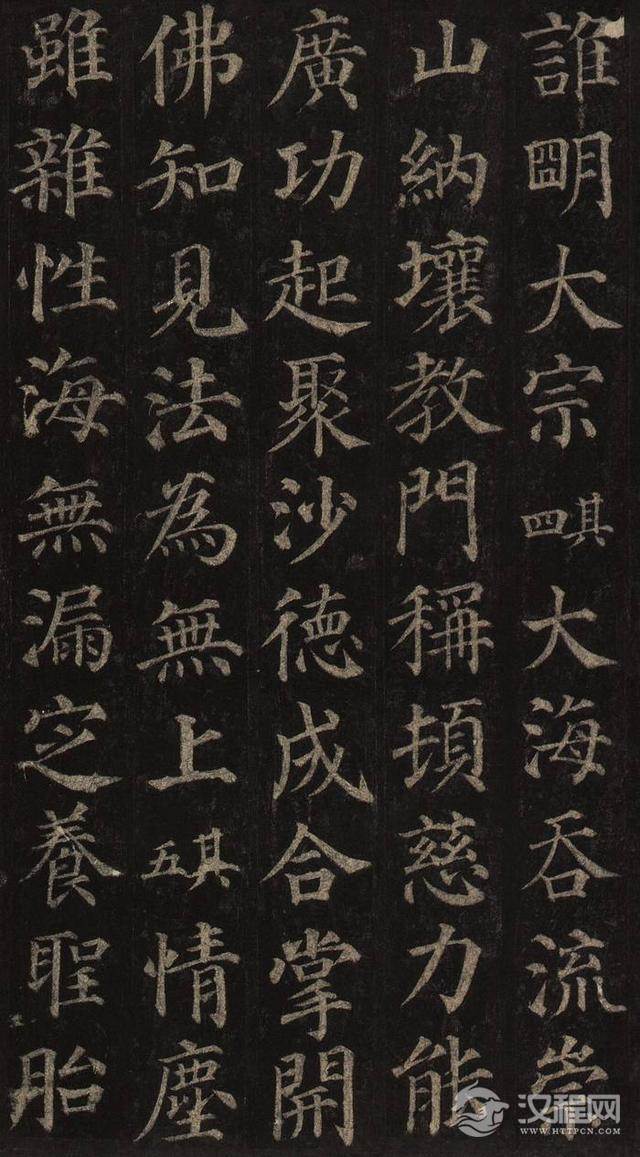 誰朙大宗其四大海吞流崇
山納壤教門稱頓慈力能
廣功起聚沙德成合掌開
佛知見法為無上其五情塵
雖雜性海無漏定養聖胎
汉程网
WWW.HTTPCN.COM